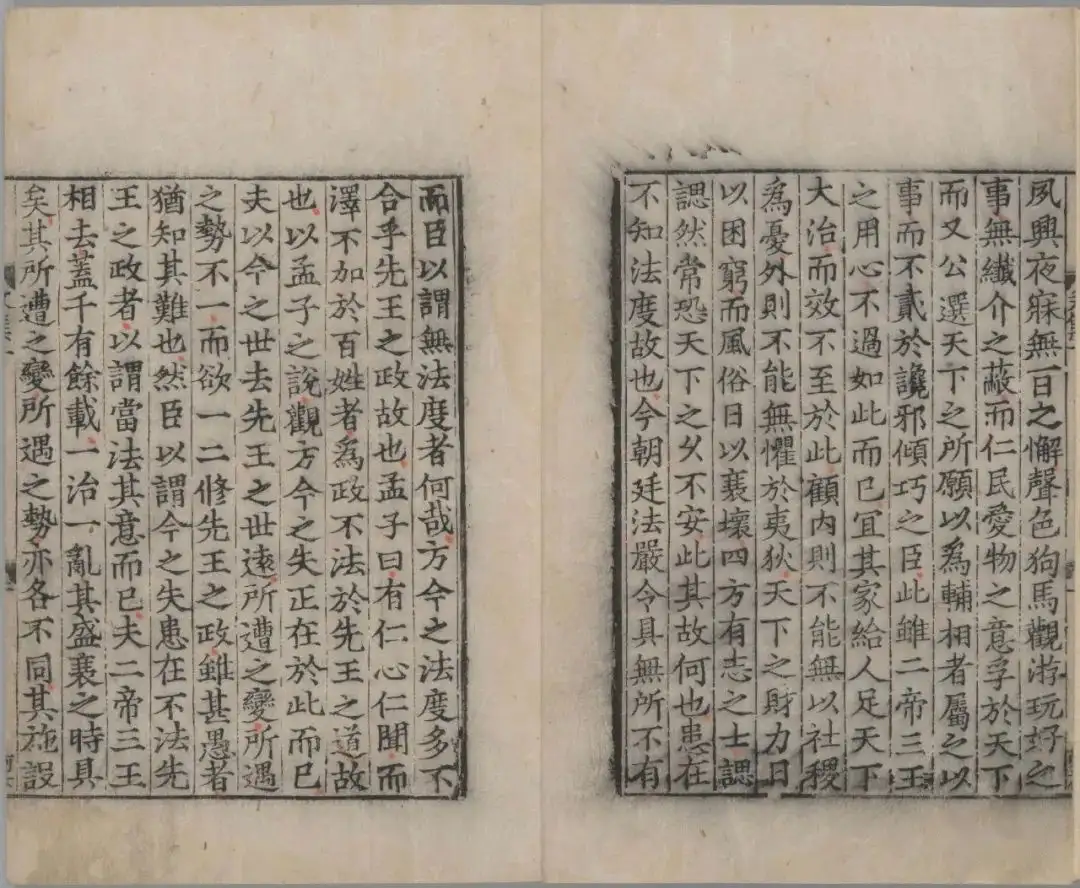 夙興夜寐無一日之懈聲色狗馬觀游玩好之
事無纖介之蔽而仁民愛物之意孚於天下
而又公選天下之所願以爲輔相者屬之以
事而不貳於讒邪傾巧之臣此雖二帝三王
之用心不過如此而已宜其家給人足天下
大治而效不至於此顧内則不能無以社稷
爲憂外則不能無懼於夷狄天下之財力日
以困窮而風俗日以衰壞四方有志之士諰
諰然常恐天下之久不安此其故何也患在
不知法度故也今朝廷法嚴令具無所不有
而臣以謂無法度者何哉方今之法度多不
合乎先王之政故也孟子曰有仁心仁聞而
澤不加於百姓者爲政不法於先王之道故
也以孟子之說觀方今之失正在於此而已
夫以今之世去先王之世遠所遭之變所遇
之勢不一而欲一二修先王之政雖甚愚者
猶知其難也然臣以謂今之失患在不法先
王之政者以謂當法其意而已夫二帝三王
相去蓋千有餘載一治一亂其盛衰之時具
矣其所遭之變所遇之勢亦各不同其施設